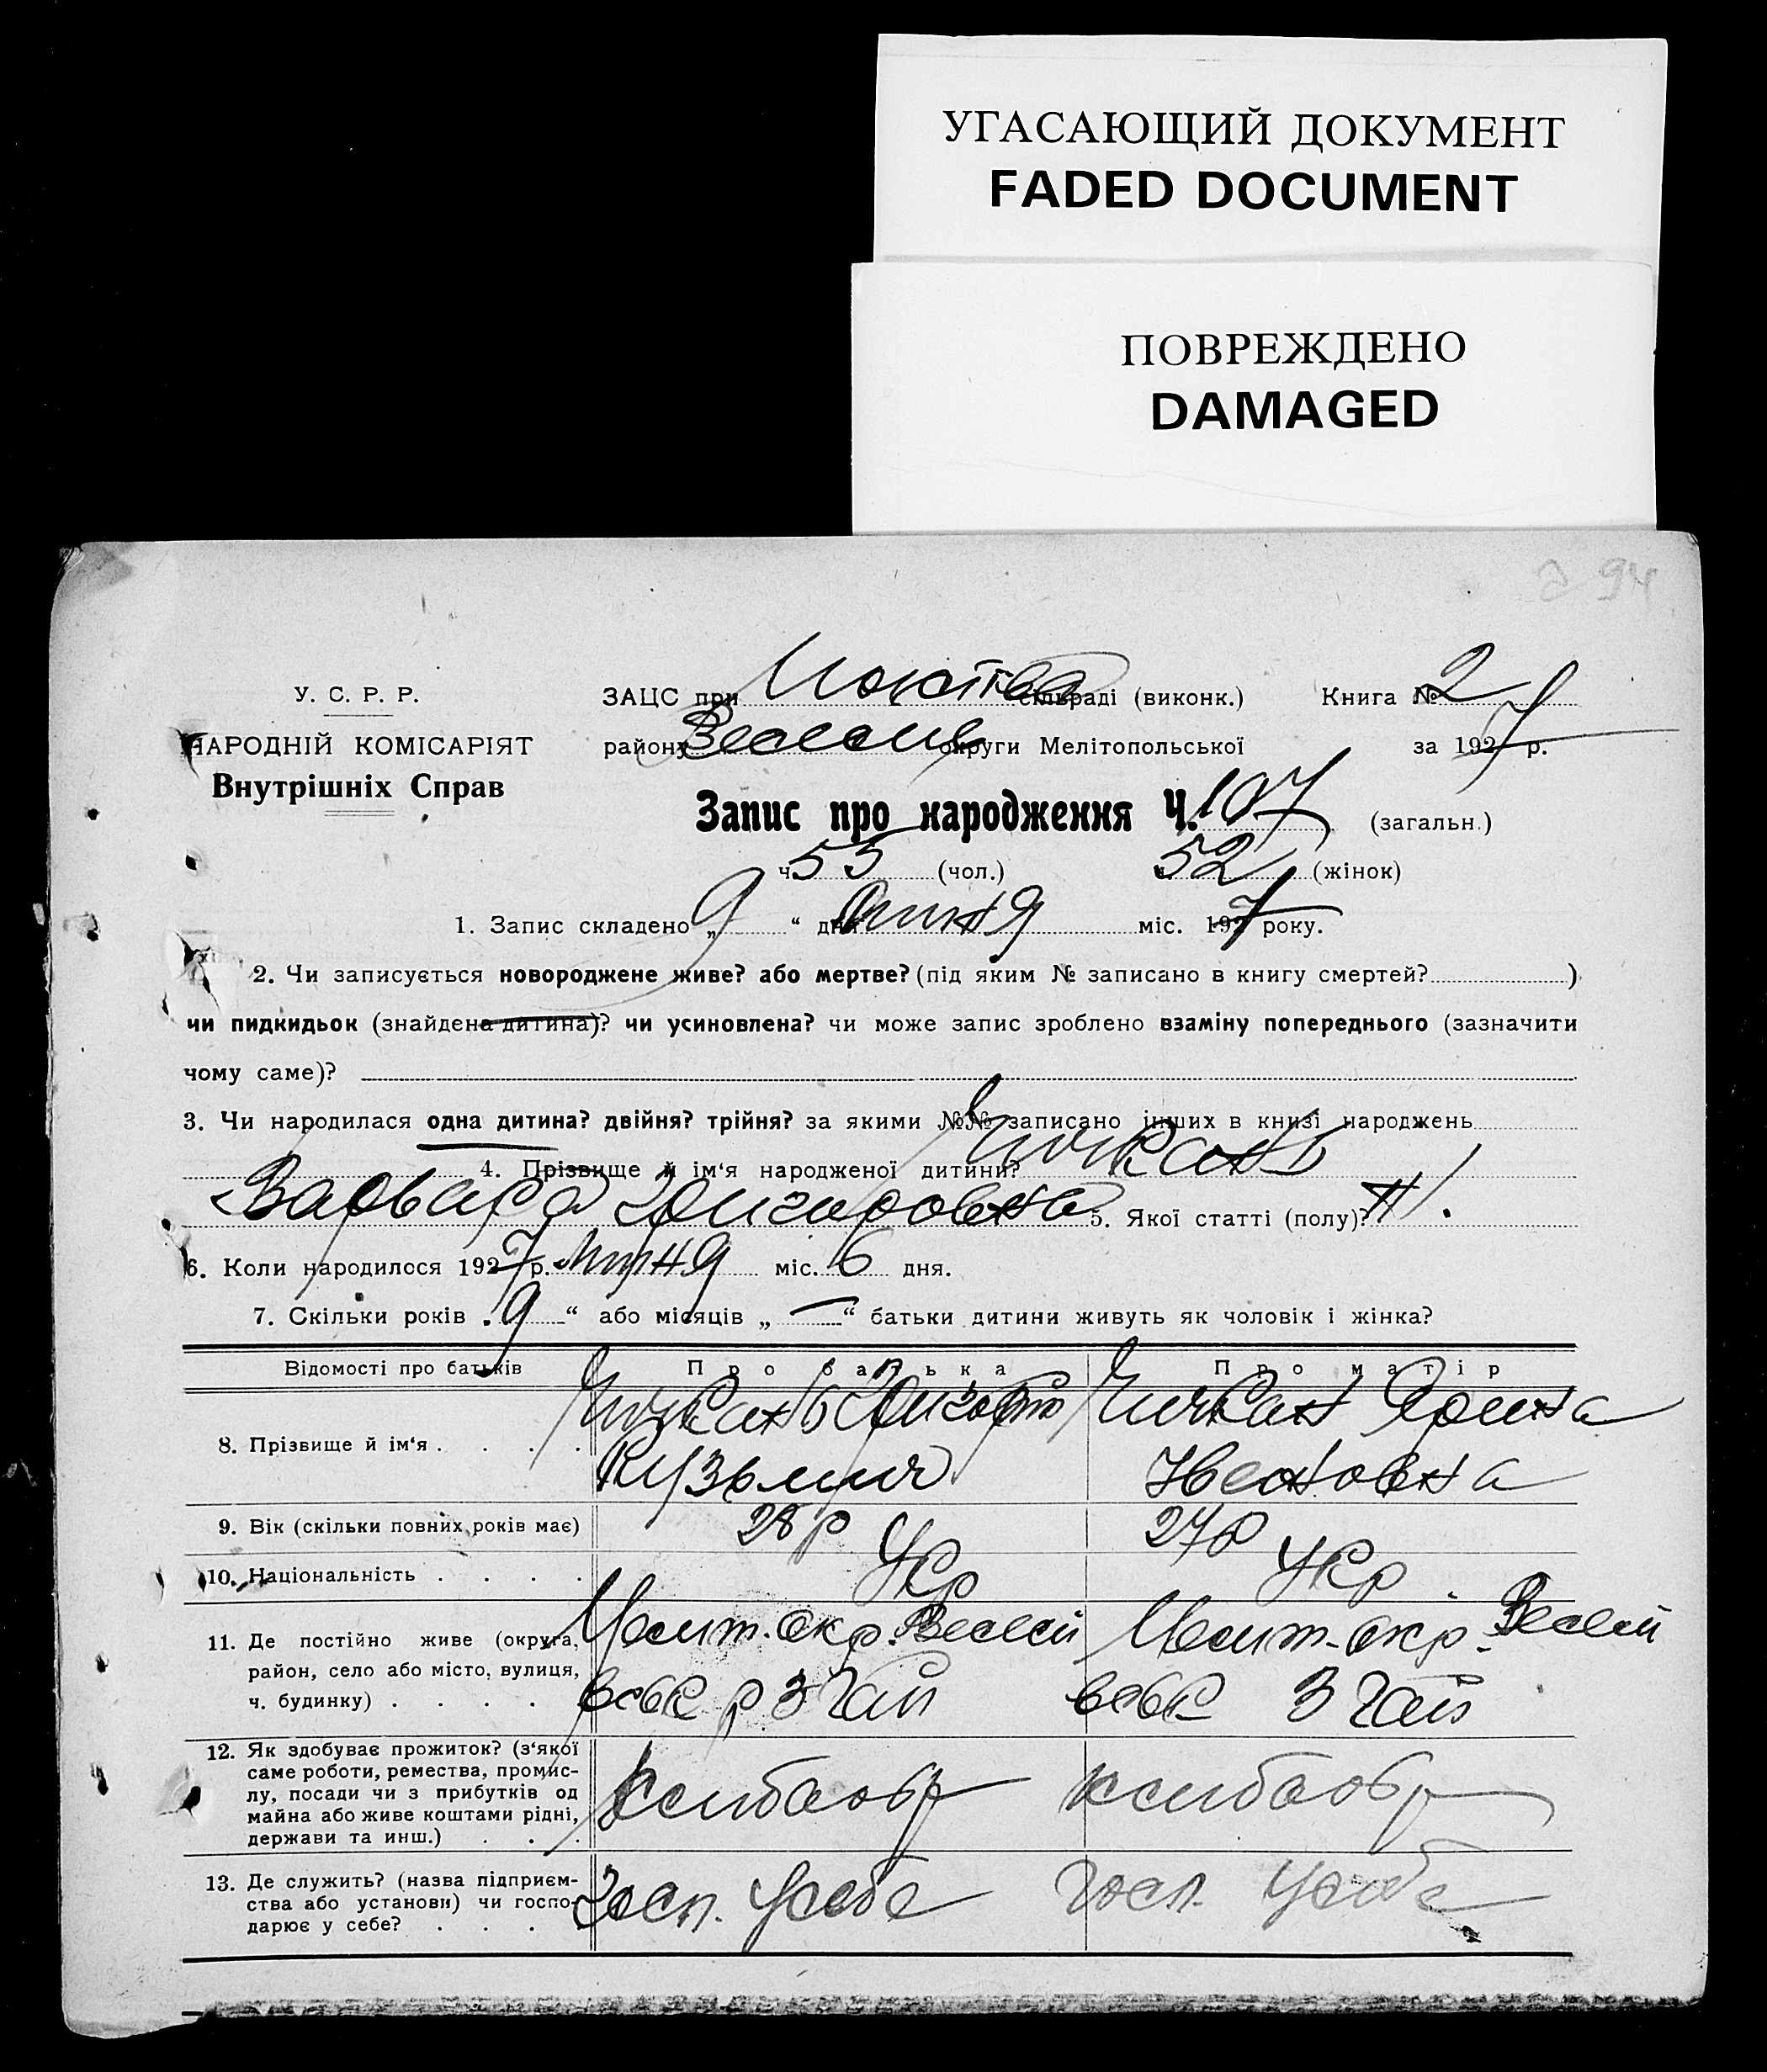 УГАСАЮЩИЙ ДОКУМЕНТ
FADED DOCUMENT
ПОВРЕЖДЕНО
DAMAGED
94
У. С. Р. Р.
НАРОДНІЙ КОМІСАРІЯТ
Внутрішніх Справ
ЗАЦС при сільраді (виконк.) Книга № 2
району Веселів округи Мелітопольської за 1927 р.
Запис про народження Ч. 107 (загальн.)
ч. 55 (чол.) ч. 52 (жінок)
1. Запис складено „ 9 “ дня липня міс. 1927 року.
2. Чи записується новороджене живе? або мертве? (під яким № записано в книгу смертей? )
чи пидкидьок (знайдена дитина)? чи усиновлена? чи може запис зроблено взаміну попереднього (зазначити
чому саме)?
3. Чи народилася одна дитина? двійня? трійня? за якими №№ записано інших в книзі народжень
4. Прізвище й ім‘я народженої дитини? Чичкань
Варвара Григоровна 5. Якої статті (полу)? Ж.
6. Коли народилося 1927 р. липня міс. 6 дня.
7. Скільки років „ 9 “ або місяців „ — “ батьки дитини живуть як чоловік і жінка?
Відомості про батьків Про батька Про матір
8. Прізвище й ім‘я . . . . Чичкань Григорій Чичкан Ярина
Кузьмич
9. Вік (скільки повних років має) 28 р 27 р
10. Національність . . . . Укр Укр
11. Де постійно живе (округа, район, село або місто, вулиця, ч. будинку) . . . . Мелит. окр. Весели Мелит-окр. Весели
12. Як здобуває прожиток? (з‘якої саме роботи, ремества, промислу, посади чи з прибутків од майна або живе коштами рідні, держави та инш.) . . . хлибаобр хлибаобр
13. Де служить? (назва підприємства або установи) чи господарює у себе? . . . Госп. Усебе Госп. Усебе